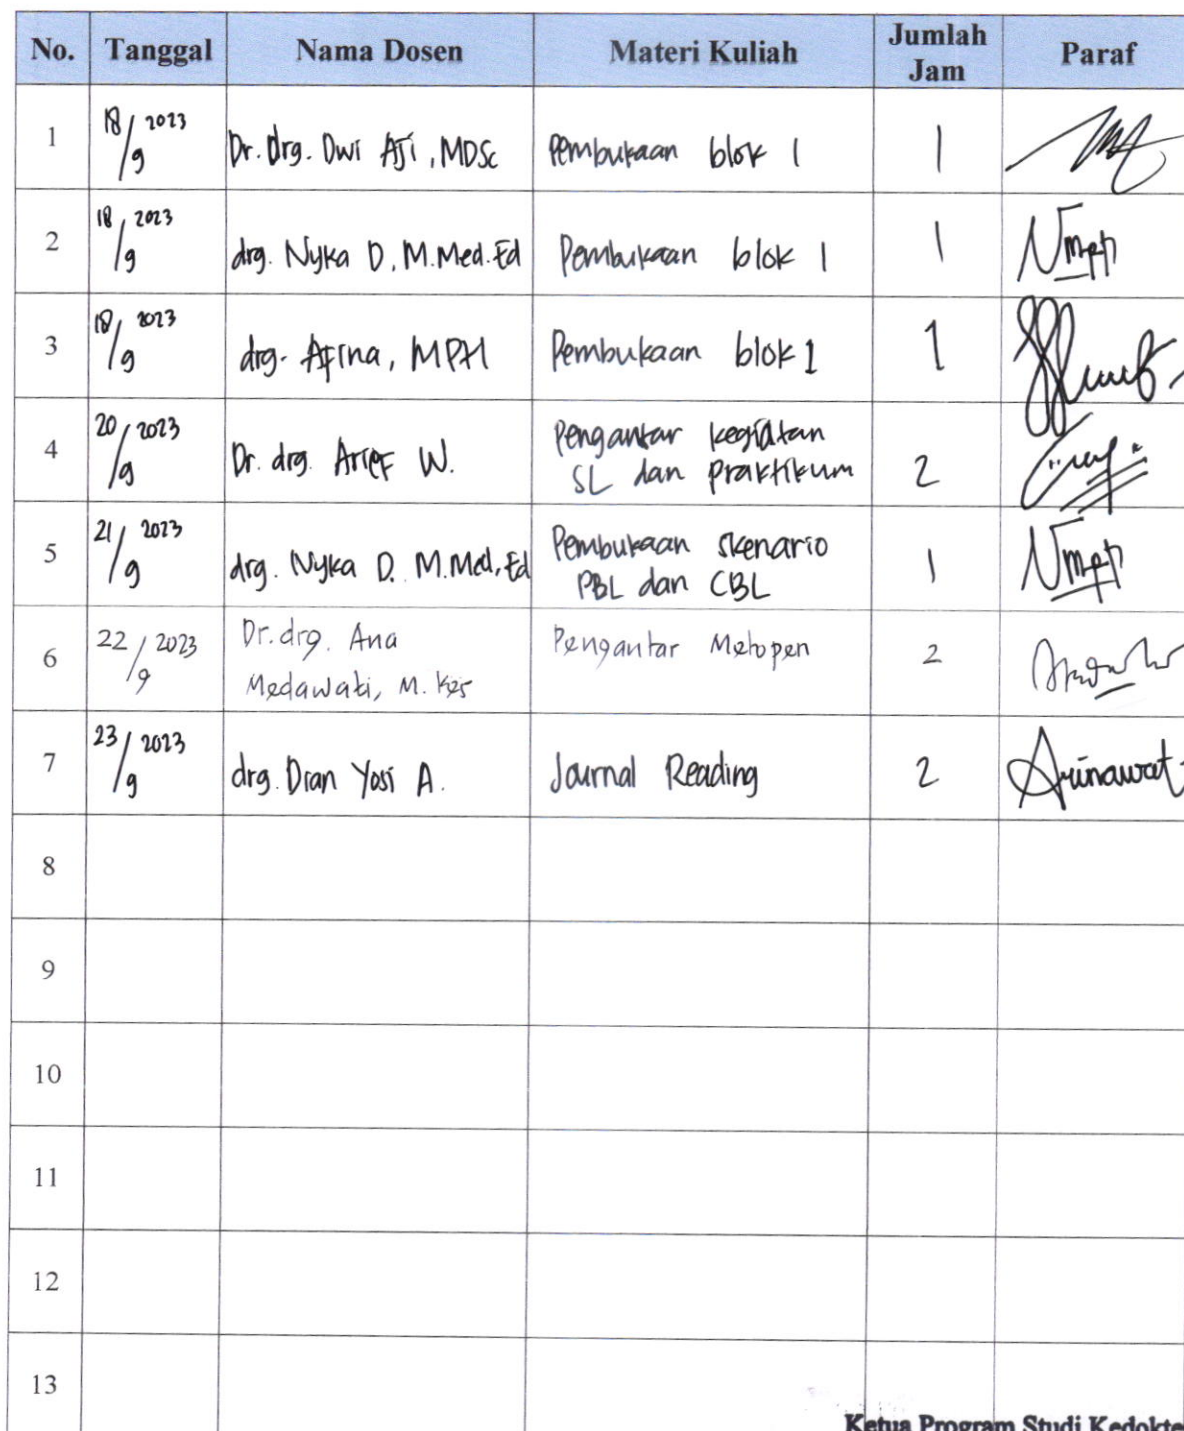 No. Tanggal Nama Dosen Materi Kuliah Jumlah Jam Paraf
1 18/9 2023 Dr. drg. Dwi Aji, MDSc Pembukaan blok 1 1
2 18/9 2023 drg. Nyka D. M.Med.Ed Pembukaan blok 1 1
3 18/9 2023 drg. Afina, MPH Pembukaan blok 1 1
4 20/9 2023 Dr. drg. Arief W. Pengantar kegiatan SL dan praktikum 2
5 21/9 2023 drg. Nyka D. M.Med.Ed Pembukaan skenario PBL dan CBL 1
6 22/9 2023 Dr. drg. Ana Medawati, M. Kes Pengantar Metopen 2
7 23/9 2023 drg. Dian Yosi A. Journal Reading 2 Arinawati
8
9
10
11
12
13
Ketua Program Studi Kedokte